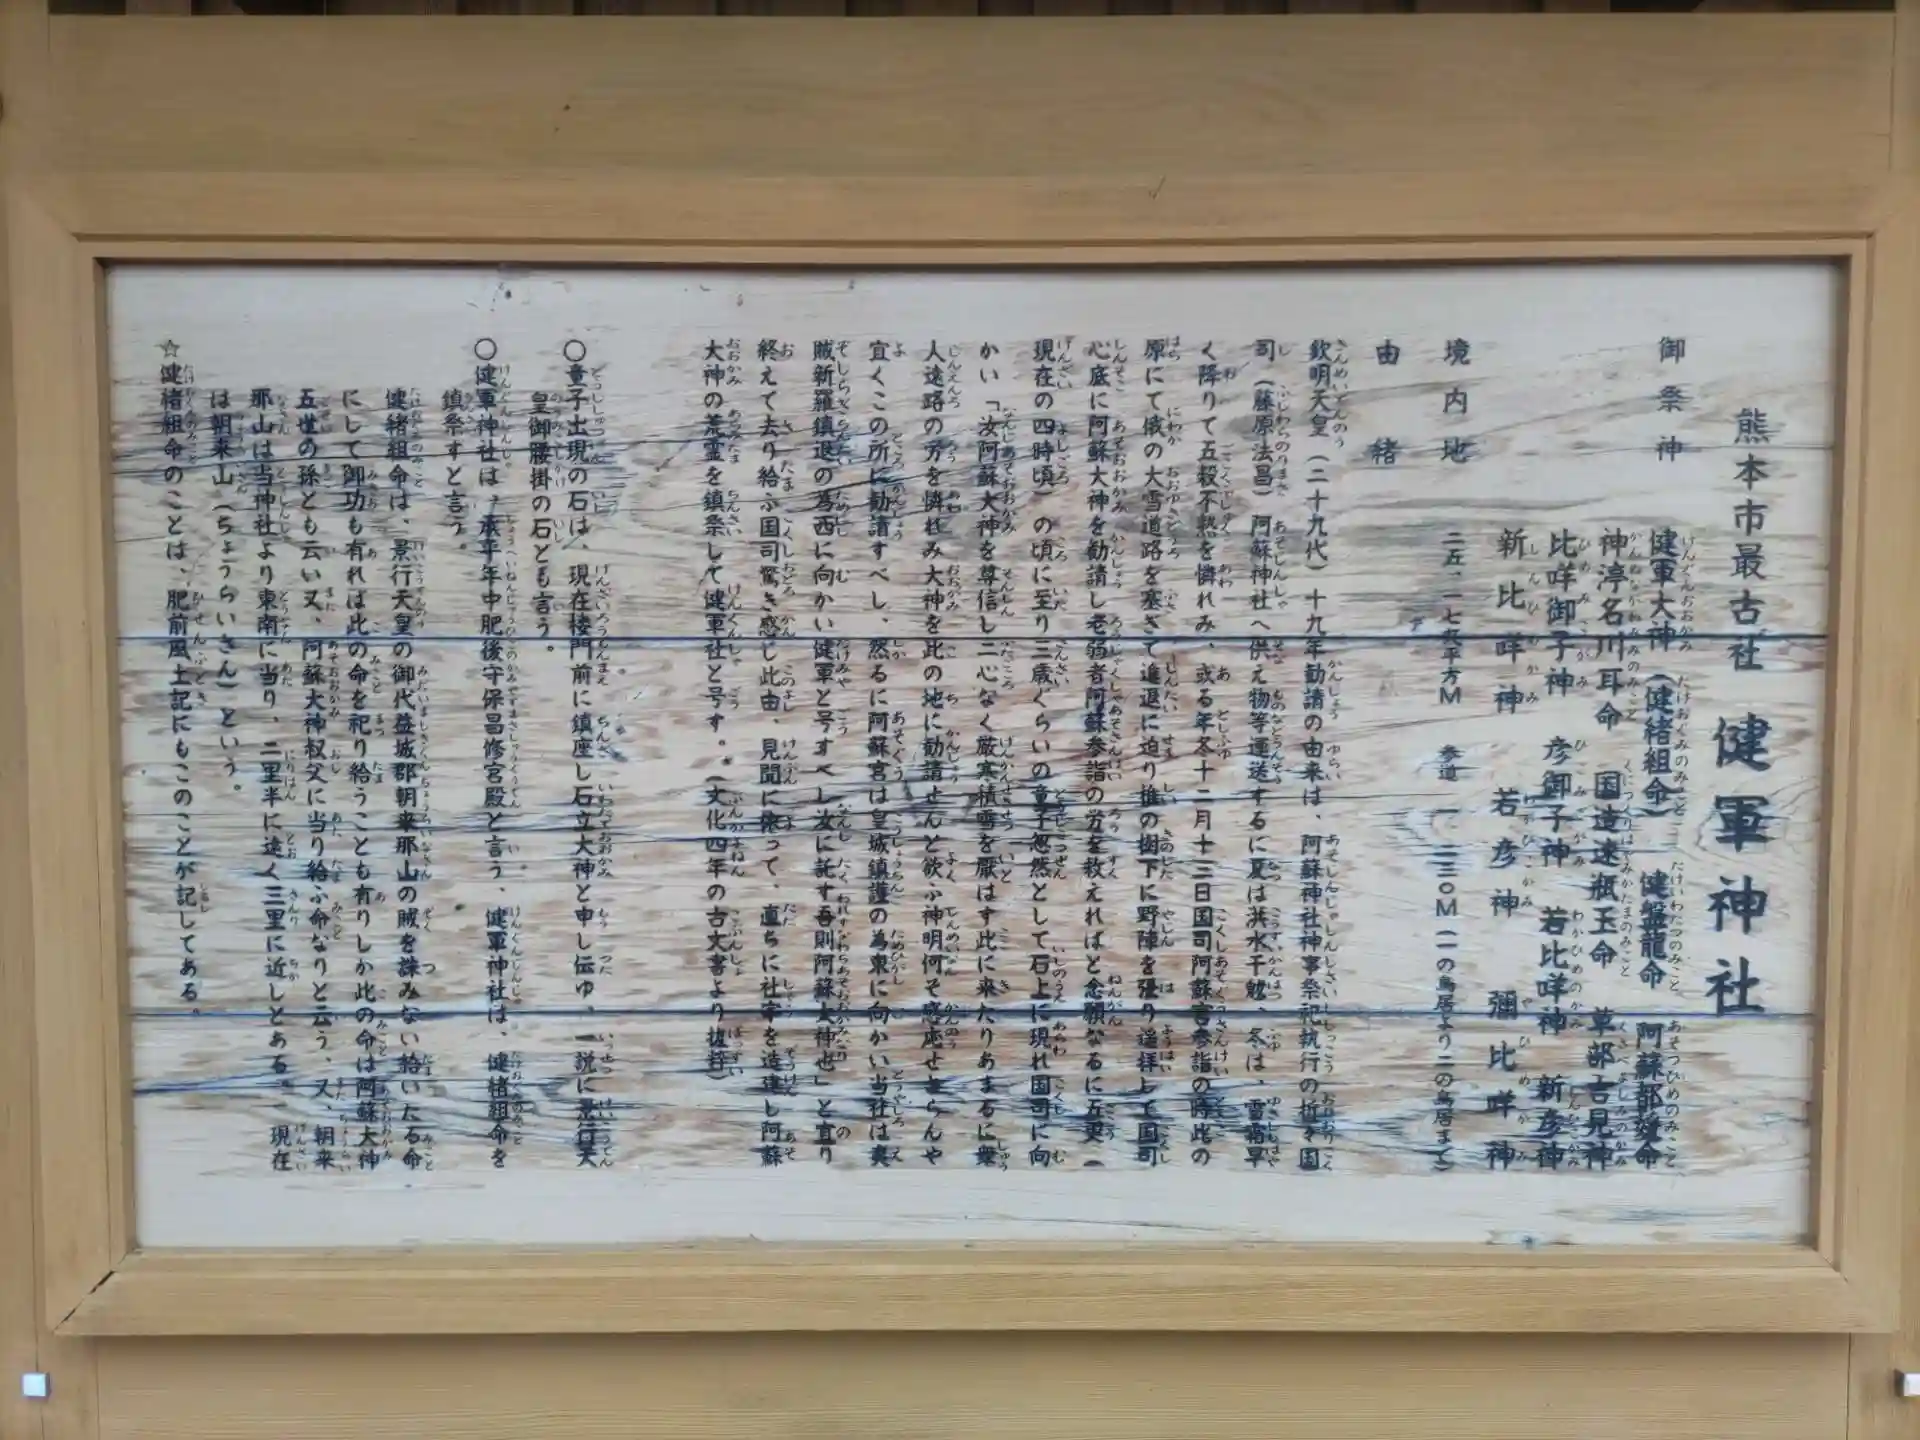 熊本市最古社 健軍神社
御祭神
健軍大神(健緒組命) 健磐龍命 阿蘇都媛命
神渟名川耳命 国造速瓶玉命 草部吉見神
比咩御子神 彦御子神 若比咩神 新彦神
新比咩神 若彦神 彌比咩神
境内地 二五、一七九平方M 参道 一、二三〇M(一の鳥居より二の鳥居まで)
由緒
欽明天皇(二十九代)十九年勧請の由来は、阿蘇神社神事祭祀執行の折々国
司(藤原法昌)阿蘇神社へ供え物等運送するに夏は洪水干魃、冬は、雪霜早
く降りて五穀不熟を憐れみ、或る年冬十二月十三日国司阿蘇宮参詣の時此の
原にて俄の大雪道路を塞ぎて進退に迫り椎の樹下に野陣を張り遥拝して国司
心底に阿蘇大神を勧請し老弱者阿蘇参詣の労を救えればと念願なるに五更(
現在の四時頃)の頃に至り三歳ぐらいの童子忽然として石上に現れ国司に向
かい「汝阿蘇大神を尊信し二心なく厳寒積雪を厭はす此に来たりあまるに衆
人遠路の労を憐れみ大神を此の地に勧請せんと欲ふ神明何そ感応せざらんや
宜くこの所に勧請すべし、然るに阿蘇宮は皇城鎮護の為東に向かい当社は夷
賊新羅鎮退の為西に向かい健軍と号すべし汝に託す吾則阿蘇大神也」と宣り
終えて去り給ふ国司驚き感じ此由、見聞に依って、直ちに社宇を造建し阿蘇
大神の荒霊を鎮祭して健軍社と号す。(文化四年の古文書より抜粋)
〇童子出現の石は、現在楼門前に鎮座し石立大神と申し伝ゆ、一説に景行天
皇御腰掛の石とも言う。
〇健軍神社は、承平年中肥後守保昌修宮殿と言う、健軍神社は、健緒組命を
鎮祭すと言う。
健緒組命は、景行天皇の御代益城郡朝来那山の賊を誅みない給いたる命
にして御功も有れば此の命を祀り給うことも有りしか此の命は阿蘇大神
五世の孫とも云い又、阿蘇大神叔父に当り給ふ命なりと云う、又、朝来
那山は当神社より東南に当り、二里半に遠く三里に近しとある。現在
は朝来山(ちょうらいさん)という。
☆健緒組命のことは、肥前風土記にもこのことが記してある。